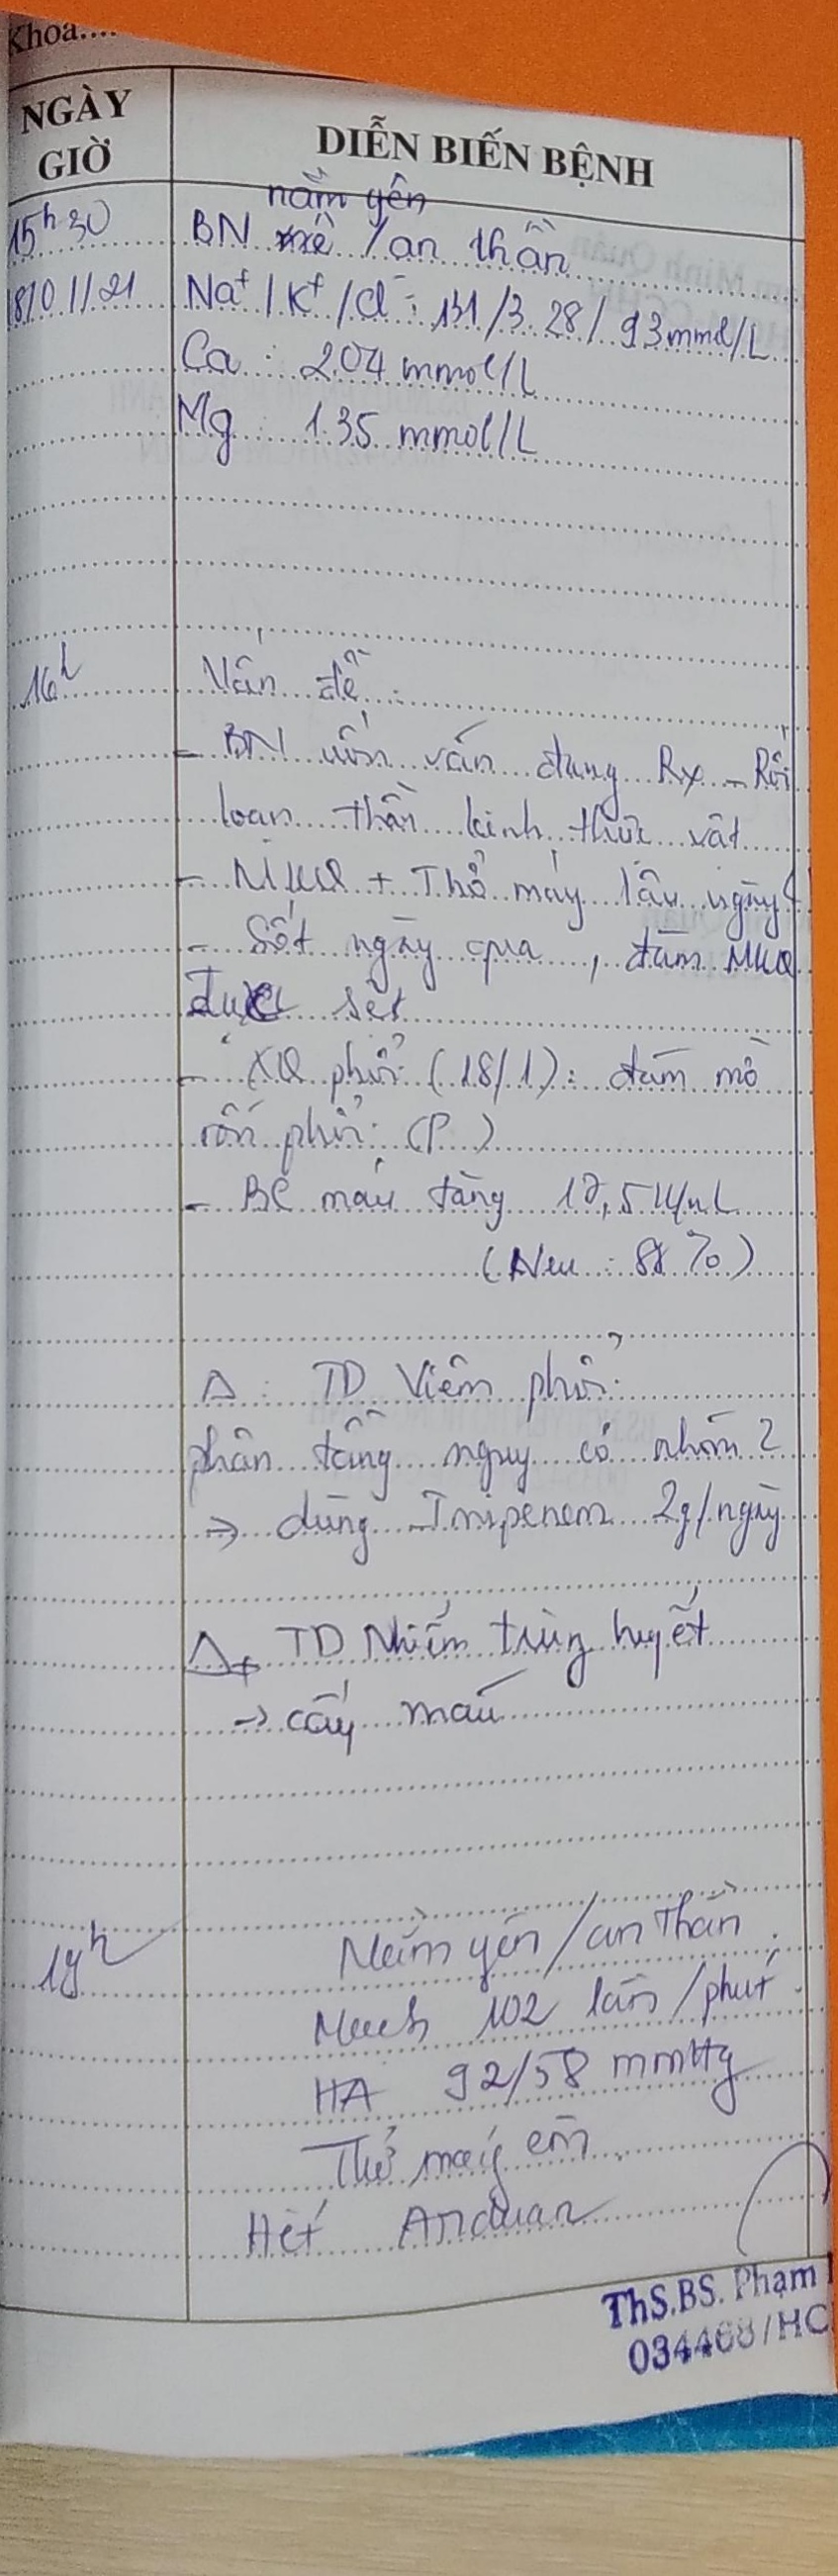 Khoa....
NGÀY GIỜ
DIỄN BIẾN BỆNH
nằm yên
15h30 BN /an thần
18/01/21 Na+/K+/Cl-: 131/3.28/93mmol/L
Ca: 2.04 mmol/L
Mg: 1.35 mmol/L
16h Vấn đề:
- BN uốn ván đang Rx - Rối
loạn thần kinh thực vật
- MKQ + Thở máy lâu ngày
- Sốt ngày qua, đàm MKQ
đục sệt
- XQ phổi (18/1): đám mờ
rốn phổi (P)
- BC máu tăng 17,5 K/uL
(Neu: 88%)
Δ: TD Viêm phổi
phân tầng nguy cơ nhóm 2
→ dùng Imipenem 2g/ngày
Δ+ TD Nhiễm trùng huyết
→ cấy máu
19h Nằm yên/an thần.
Mạch 102 lần/phút
HA 92/58 mmHg
Thở máy êm
Hết Arduan
ThS.BS. Phạm
034468/HC